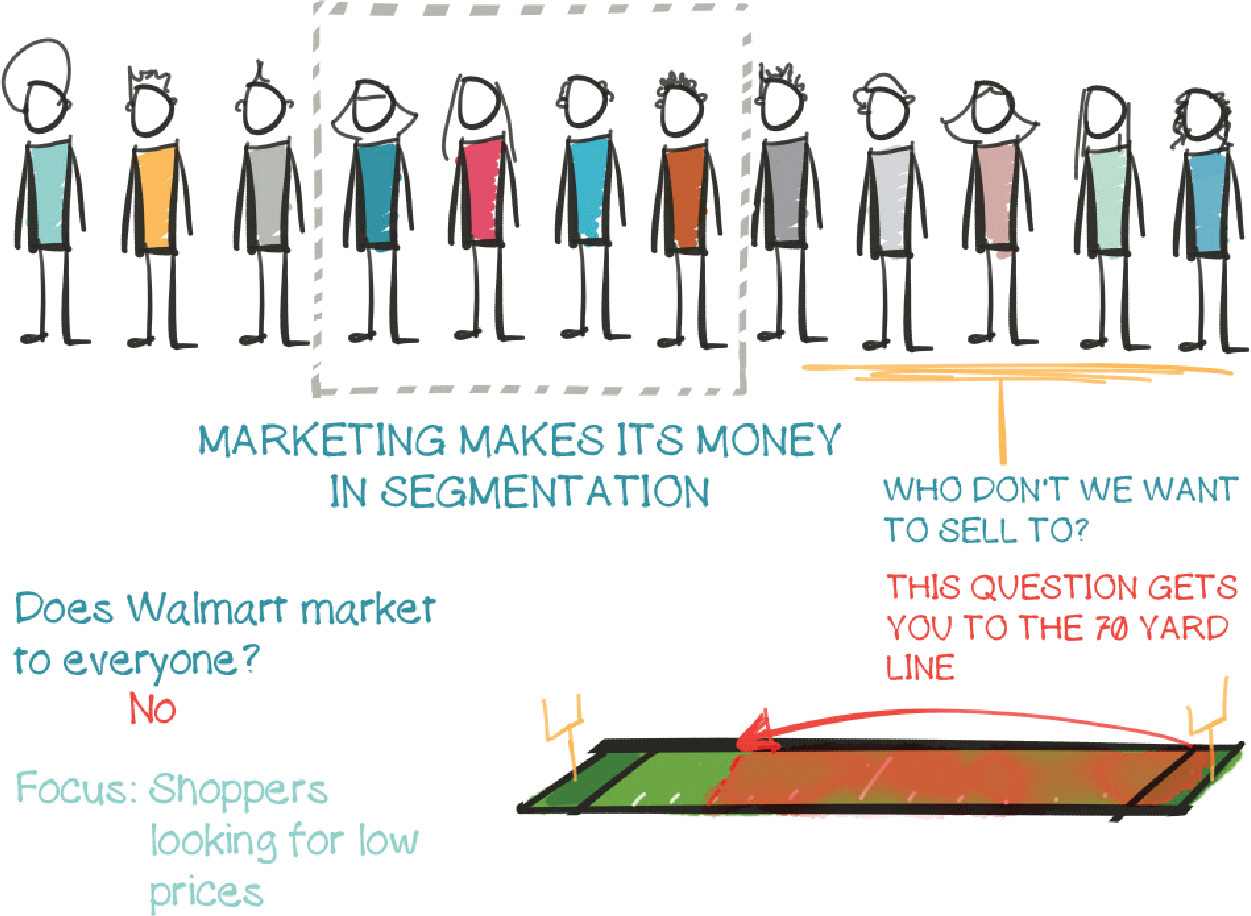 MARKETING MAKES ITS MONEY
IN SEGMENTATION
WHO DON'T WE WANT
TO SELL TO?
THIS QUESTION GETS
YOU TO THE 70 YARD
LINE
Does Walmart market
to everyone?
No
Focus: Shoppers
looking for low
prices